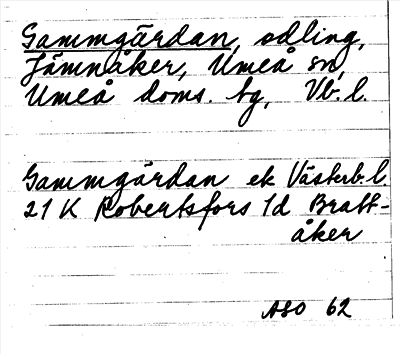 Gammgärdan, odling,
Jämnåker, Umeå sn,
Umeå doms. tg, Vb. l.
Gammgärdan ek Västerb. l.
21 K Robertsfors 1d Bratt-
åker
ASO 62